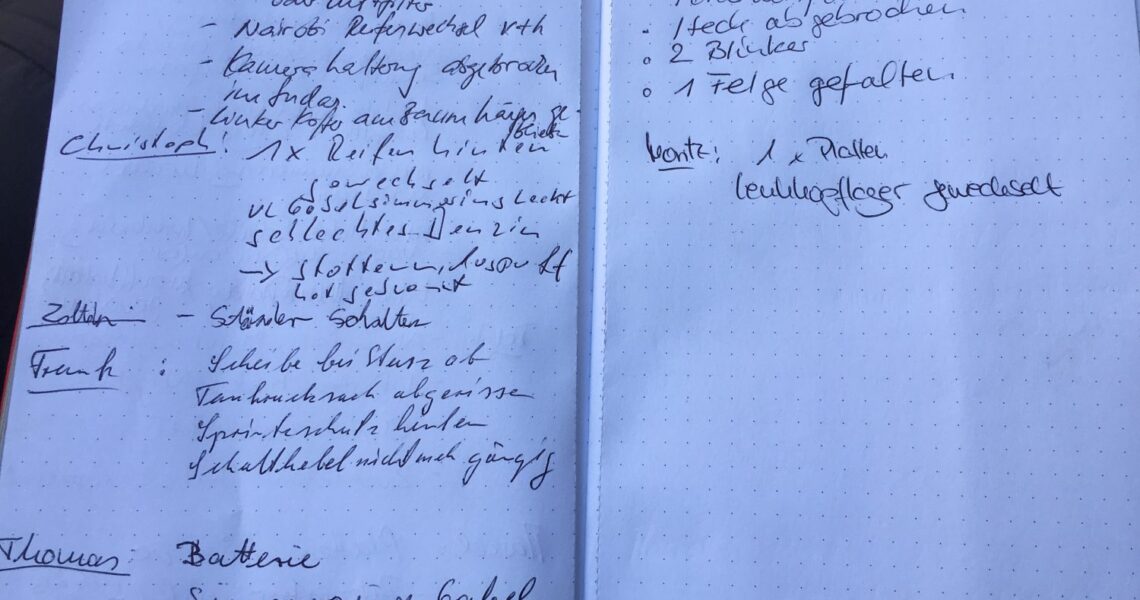 - Nairobi Reifenwechsel v+h
- Kamerahaltung abgebrochen
im Sudan.
- linker Koffer am Baum hängen ge-
blieben
Christoph: 1x Reifen hinten
gewechselt
vl Gabelsimmering leckt
schlechtes Benzin
-> stottern, Auspuff
hat geknallt
Zoltan - Ständer Schalter
Frank : Scheibe bei Sturz ab
Tankrucksack abgerissen
Spritzschutz hinten
Schalthebel nicht mehr gängig
Thomas: Batterie
Gabel
abgebrochen
• 2 Blinker
• 1 Felge gefalten
Moritz: 1 x Platten
Lenkkopflager gewechselt